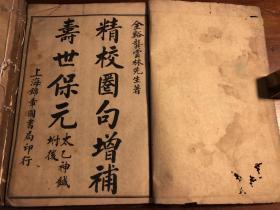 金谿龔雲林先生著
精校圈句增補
壽世保元
太乙神鍼
附後
上海錦章圖書局印行